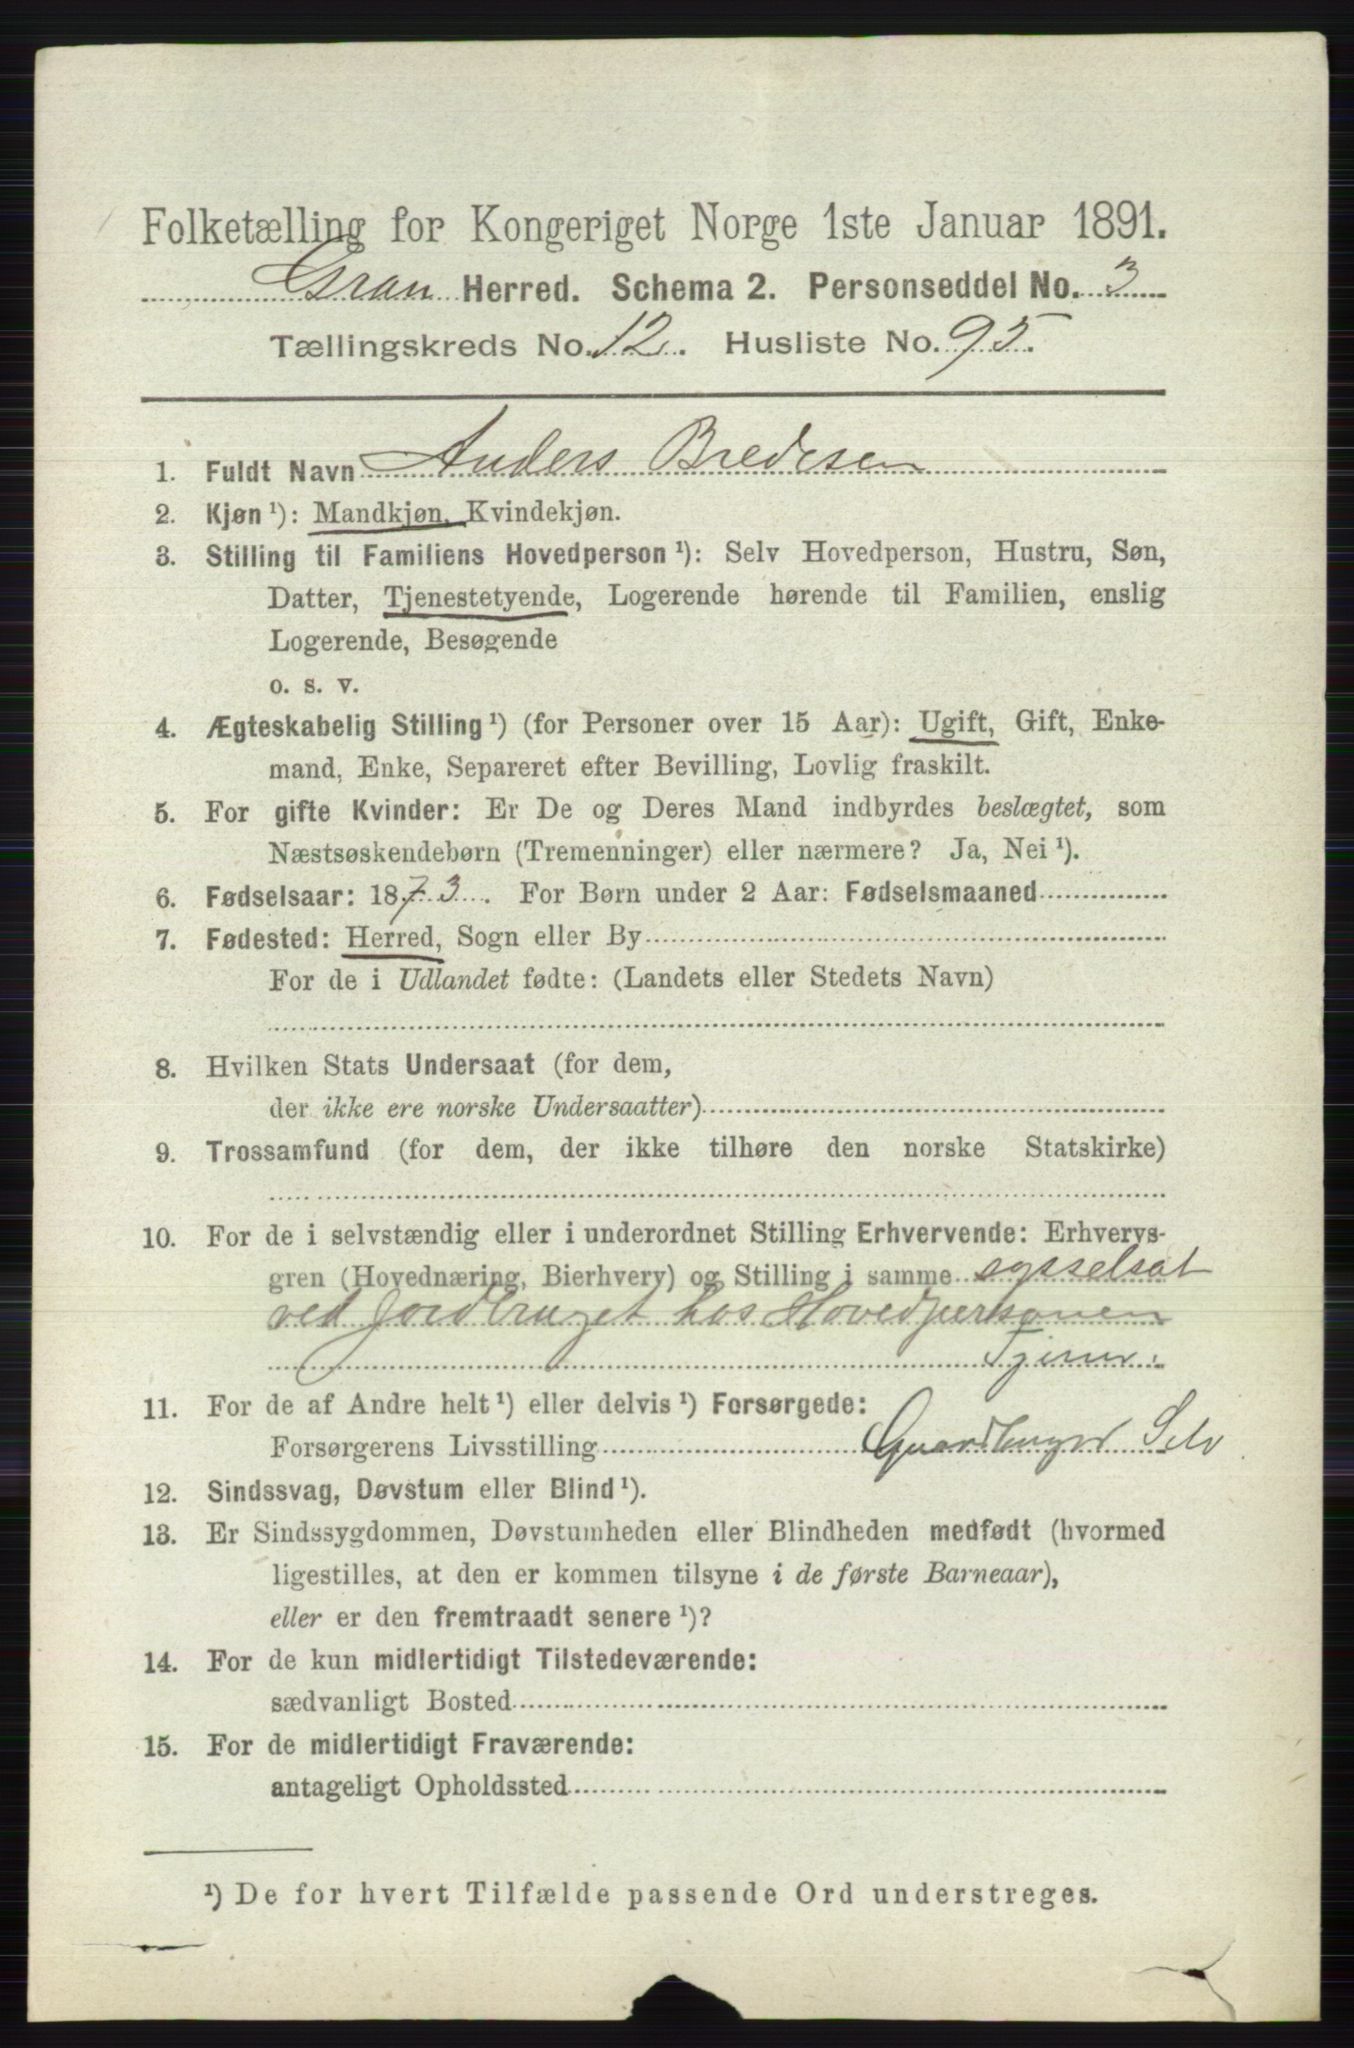 Folketælling for Kongeriget Norge 1ste Januar 1891.
Gran Herred. Schema 2. Personseddel No. 3
Tællingskreds No. 12. Husliste No. 95.
1. Fuldt Navn Anders Bredesen
2. Kjøn ¹): Mandkjøn, Kvindekjøn.
3. Stilling til Familiens Hovedperson ¹): Selv Hovedperson, Hustru, Søn,
Datter, Tjenestetyende, Logerende hørende til Familien, enslig
Logerende, Besøgende
o. s. v.
4. Ægteskabelig Stilling ¹) (for Personer over 15 Aar): Ugift, Gift, Enke-
mand, Enke, Separeret efter Bevilling, Lovlig fraskilt.
5. For gifte Kvinder: Er De og Deres Mand indbyrdes beslægtet, som
Næstsøskendebørn (Tremenninger) eller nærmere? Ja, Nei ¹).
6. Fødselsaar: 1873. For Børn under 2 Aar: Fødselsmaaned
7. Fødested: Herred, Sogn eller By
For de i Udlandet fødte: (Landets eller Stedets Navn)
8. Hvilken Stats Undersaat (for dem,
der ikke ere norske Undersaatter)
9. Trossamfund (for dem, der ikke tilhøre den norske Statskirke)
10. For de i selvstændig eller i underordnet Stilling Erhvervende: Erhvervs-
gren (Hovednæring, Bierhverv) og Stilling i samme sysselsat
ved Jordbruget hos Hovedpersonen
Tjener.
11. For de af Andre helt ¹) eller delvis ¹) Forsørgede:
Forsørgerens Livsstilling Gaardbruger Selv
12. Sindssvag, Døvstum eller Blind ¹).
13. Er Sindssygdommen, Døvstumheden eller Blindheden medfødt (hvormed
ligestilles, at den er kommen tilsyne i de første Barneaar),
eller er den fremtraadt senere ¹)?
14. For de kun midlertidigt Tilstedeværende:
sædvanligt Bosted
15. For de midlertidigt Fraværende:
antageligt Opholdssted
¹) De for hvert Tilfælde passende Ord understreges.